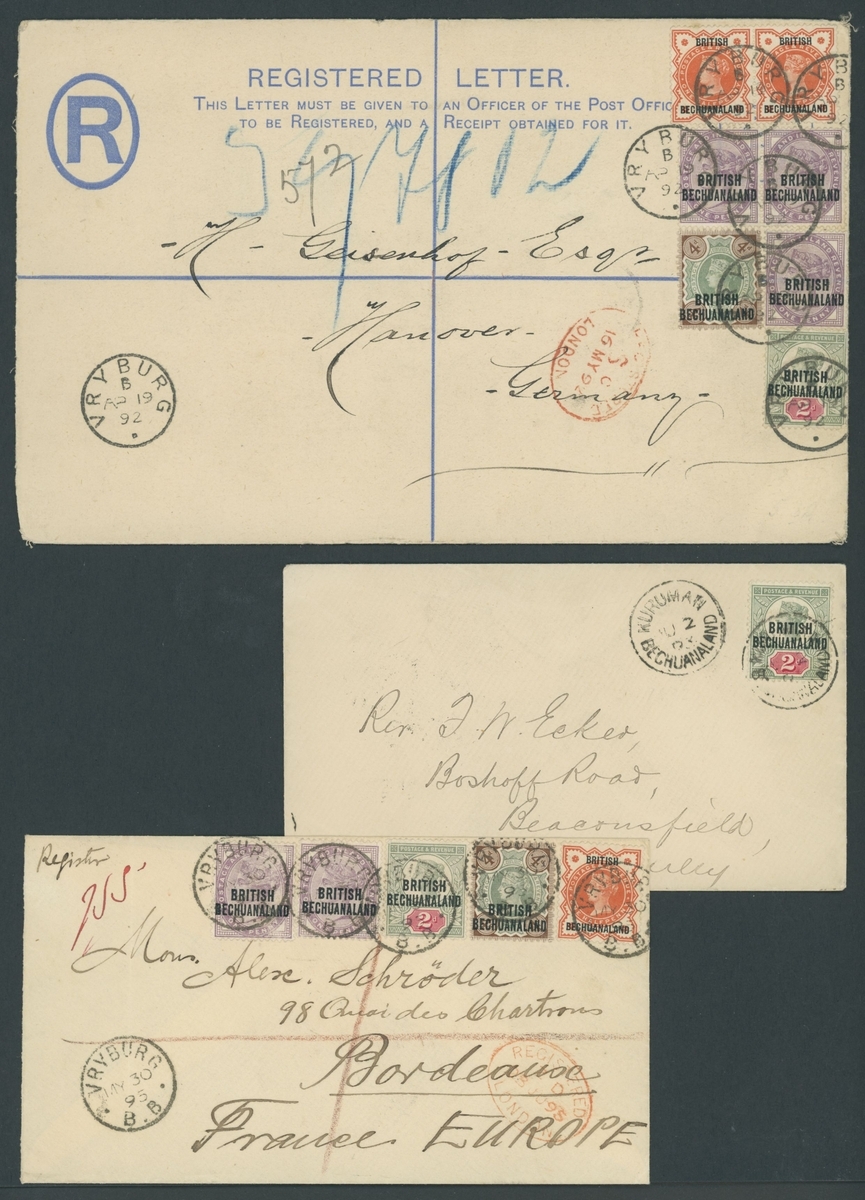 R
REGISTERED LETTER.
THIS LETTER MUST BE GIVEN TO AN OFFICER OF THE POST OFFIC
TO BE REGISTERED, AND A RECEIPT OBTAINED FOR IT.
572
BRITISH BECHUANALAND
BRITISH BECHUANALAND
BRITISH BECHUANALAND
BRITISH BECHUANALAND
4 4
BRITISH BECHUANALAND
BRITISH BECHUANALAND
ONE PENNY
POSTAGE & REVENUE
BRITISH BECHUANALAND
2
VRYBURG
B
92
- H. Geisenhof - Esqr
Hanover -
- Germany -
REGISTERED LONDON
16 MY 92
VRYBURG
B
AP 19
92
KURUMAN
2
BECHUANALAND
POSTAGE & REVENUE
BRITISH BECHUANALAND
2
Rev. F. W. Ecker,
Boshoff Road,
Beaconsfield,
Register
955
VRYBURG
B.B.
BRITISH BECHUANALAND
BRITISH BECHUANALAND
POSTAGE & REVENUE
BRITISH BECHUANALAND
2
4 4
BRITISH BECHUANALAND
BRITISH BECHUANALAND
Mons. Alex. Schröder
98 Quai des Chartrons
Bordeaux
France EUROPE
VRYBURG
MY 30
95
B.B.
REGISTERED
D
95
LONDON